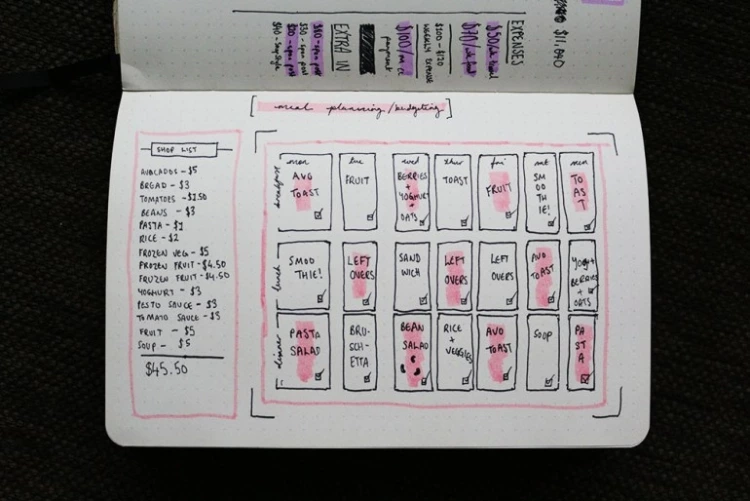 EXPENSES
$100 - $120
WEEKLY EXPENSE
$100/mo cc
payment
EXTRA IN
meal planning/budgeting
SHOP LIST
AVOCADOS - $5
BREAD - $3
TOMATOES - $1.50
BEANS - $3
PASTA - $1
RICE - $2
FROZEN VEG - $5
FROZEN FRUIT - $4.50
FROZEN FRUIT - $4.50
YOGHURT - $3
PESTO SAUCE - $3
TOMATO SAUCE - $3
FRUIT - $5
SOUP - $5
$45.50
mon tue wed thur fri sat
breakfast
AVO
TOAST
FRUIT
BERRIES
+
YOGHURT
+
OATS
TOAST
FRUIT
SM
OO
TH
IE!
TO
AS
T
lunch
SMOO
THIE!
LEFT
OVERS
SAND
WICH
LEFT
OVERS
LEFT
OVERS
AVO
TOAST
YOG+
BERRIES
+
OATS
dinner
PASTA
SALAD
BRU-
SCH-
ETTA
BEAN
SALAD
RICE
+
VEGGIES
AVO
TOAST
SOUP
PA
ST
A